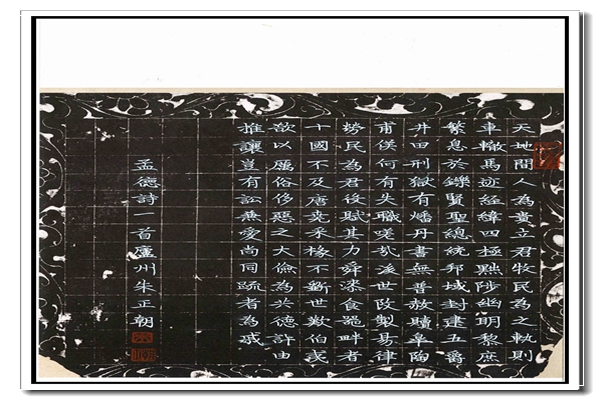 天地間人為貴立君牧民為之軌則
車轍馬迹經緯四極黜陟幽明黎庶
繁息於鑠賢聖總統邦域封建五爵
井田刑獄有燔丹書無普赦贖皋陶
甫侯何有失職嗟哉後世改製易律
勞民為君役賦其力舜漆食器畔者
十國不及唐堯采椽不斲世歎伯夷
欲以厲俗侈惡之大儉為共德許由
推讓豈有訟兼愛尚同疏者為戚
孟德詩一首廬州朱正朝